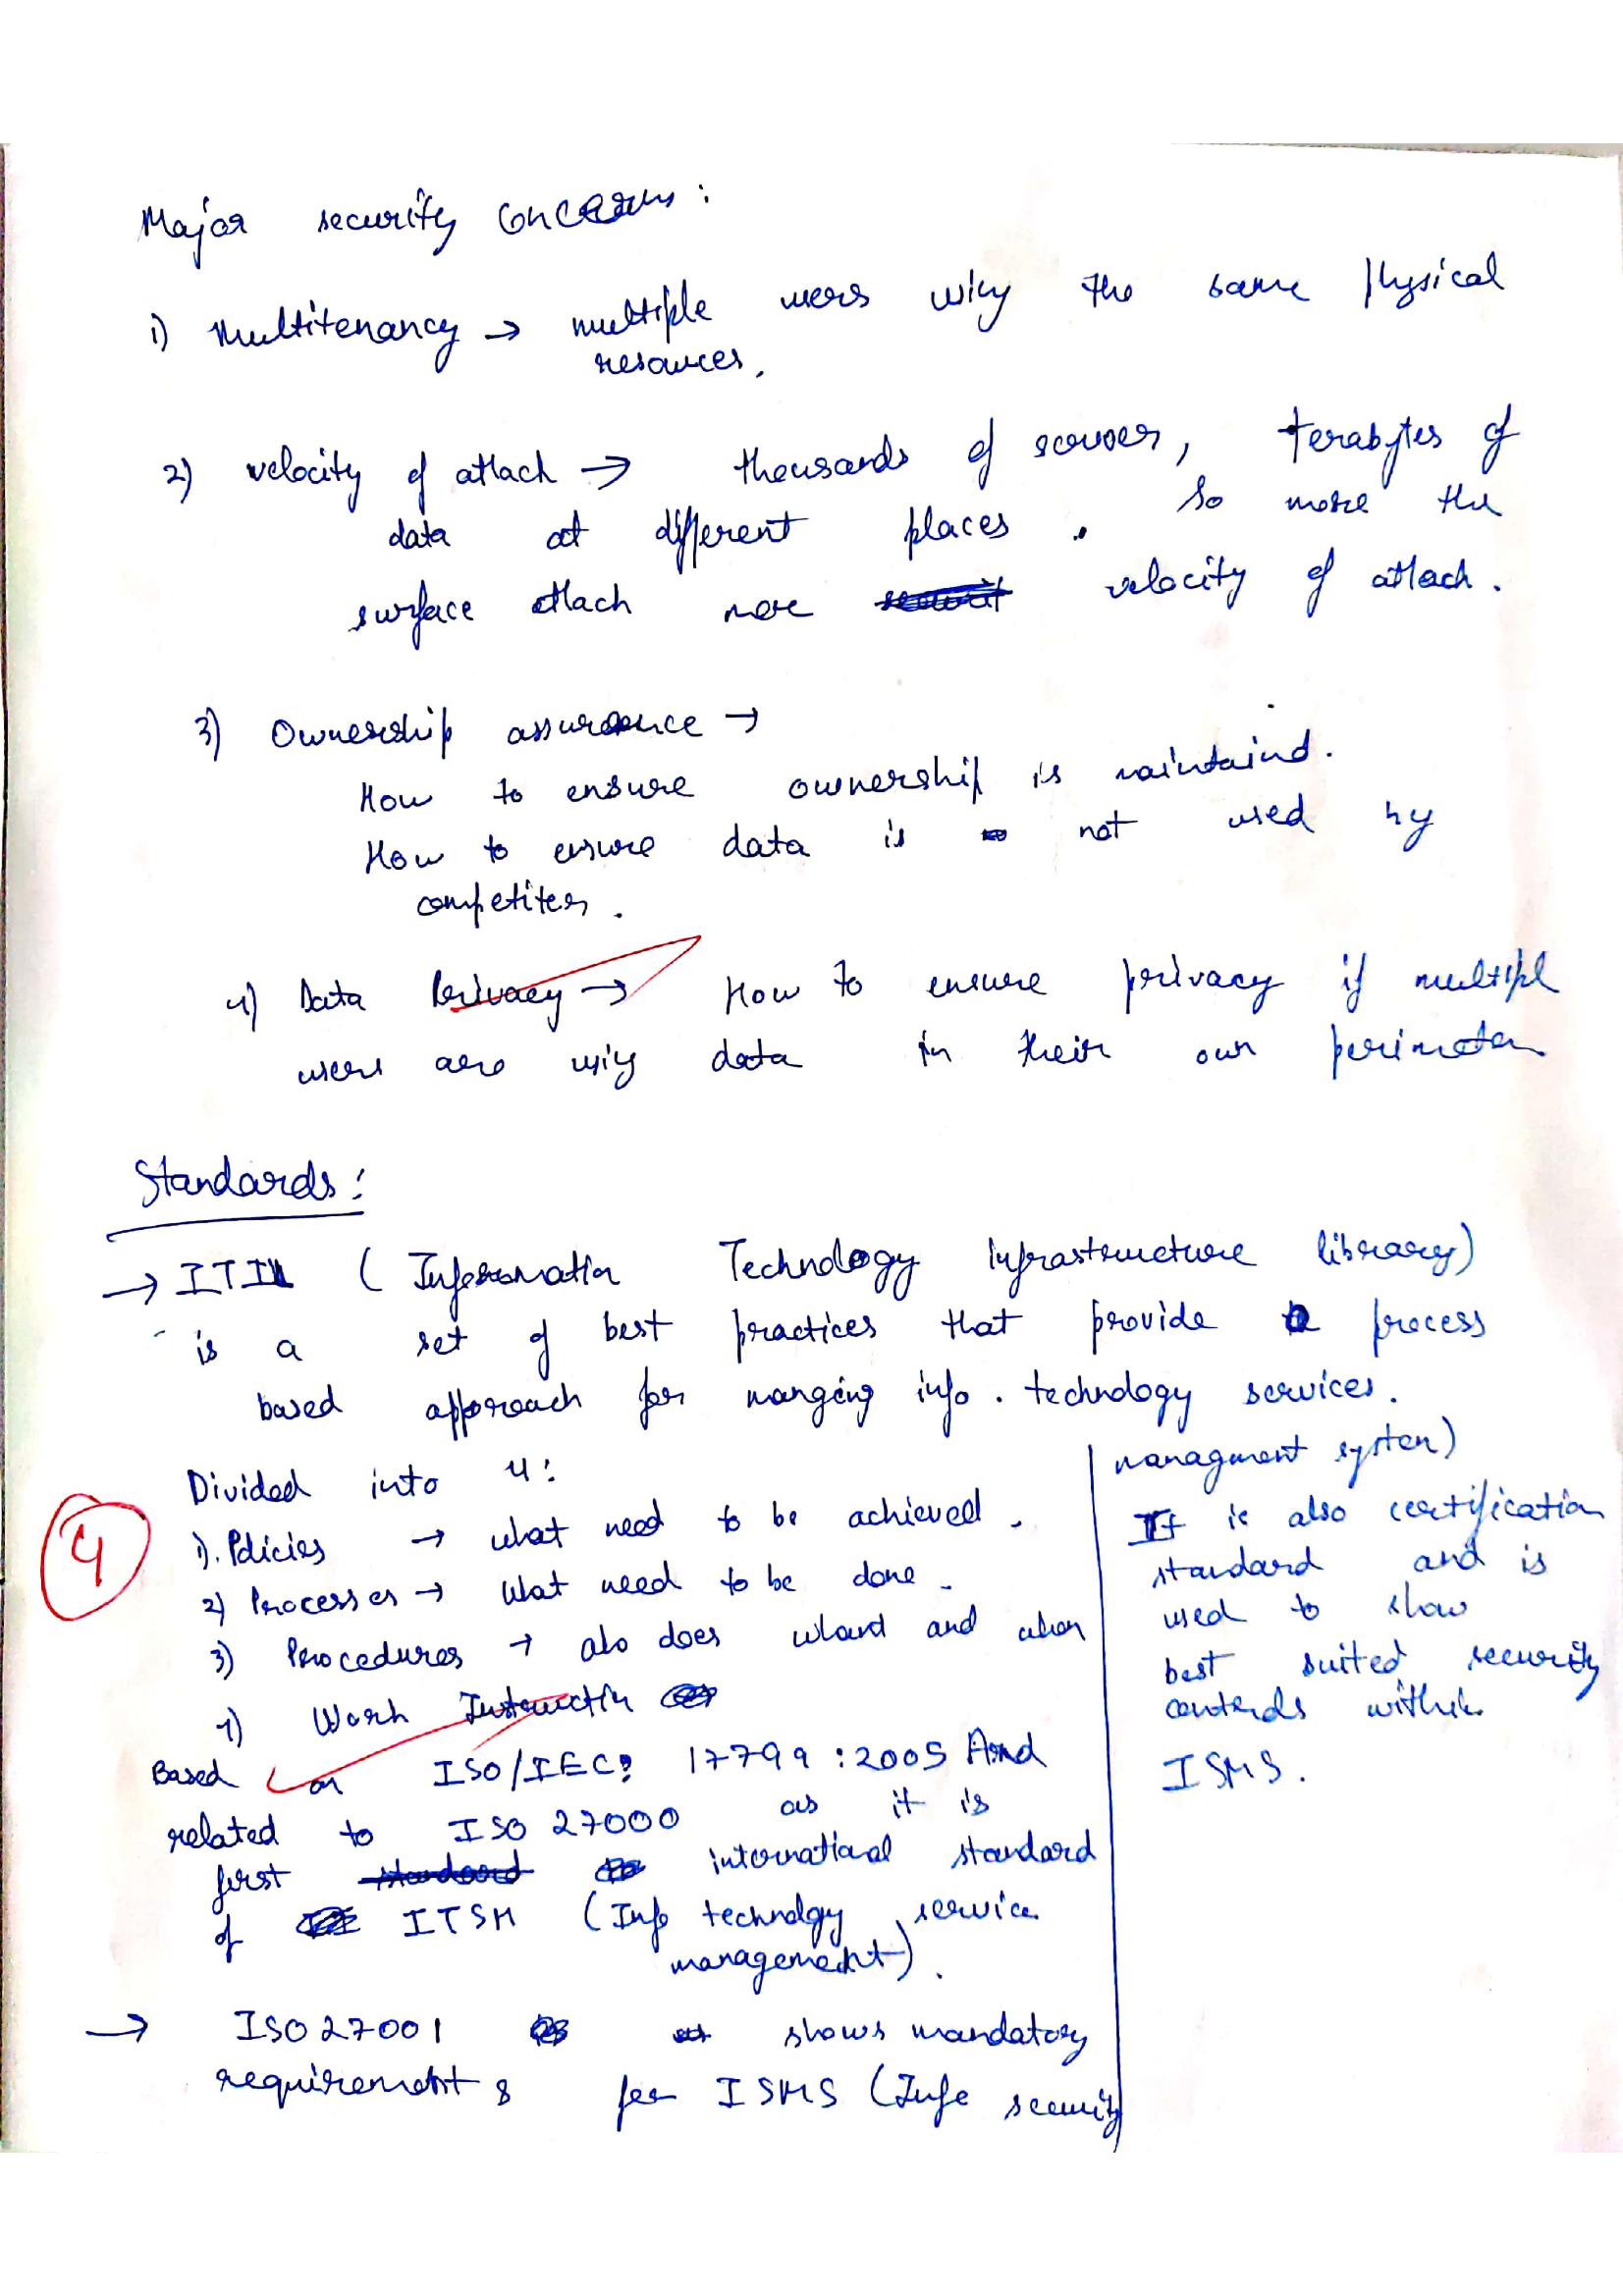 Major security concerns :
1) Multitenancy → multiple users using the same physical
resources.
2) velocity of attack → thousands of servers, terabytes of
data at different places . So more the
surface attack more velocity of attack .
3) Ownership assurance →
How to ensure ownership is maintaind.
How to ensure data is not used by
competiters .
4) Data Privacy → How to ensure privacy if multipl
users are using data in their own perimeter
Standards :
→ ITIL ( Information Technology infrastructure library)
is a set of best practices that provide process
based approach for manging info . technology services .
Divided into 4 :
1). Policies → what need to be achieved .
2) Processes → What need to be done .
3) Procedures → also does who and when
4) Work Instruction
4
Based on ISO/IEC: 17799 : 2005 And
related to ISO 27000 as it is
first international standard
of ITSM (Info technolgy service
management) .
→ ISO 27001 shows mandatory
requirements for ISMS (Info security
managment system)
It is also certification
standard and is
used to show
best suited security
within
ISMS .